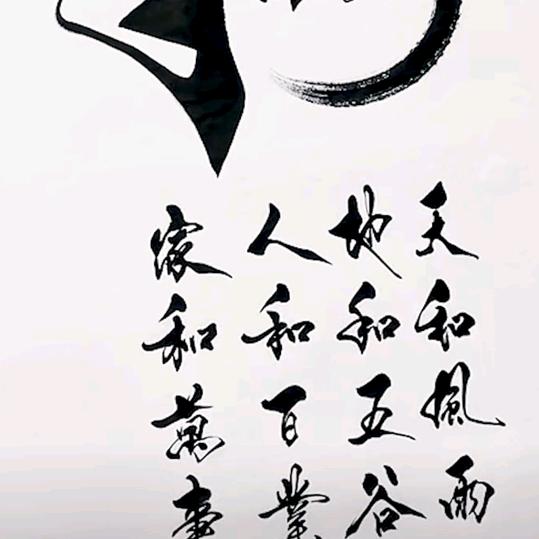 天和風雨
地和五谷
人和百業
家和萬事